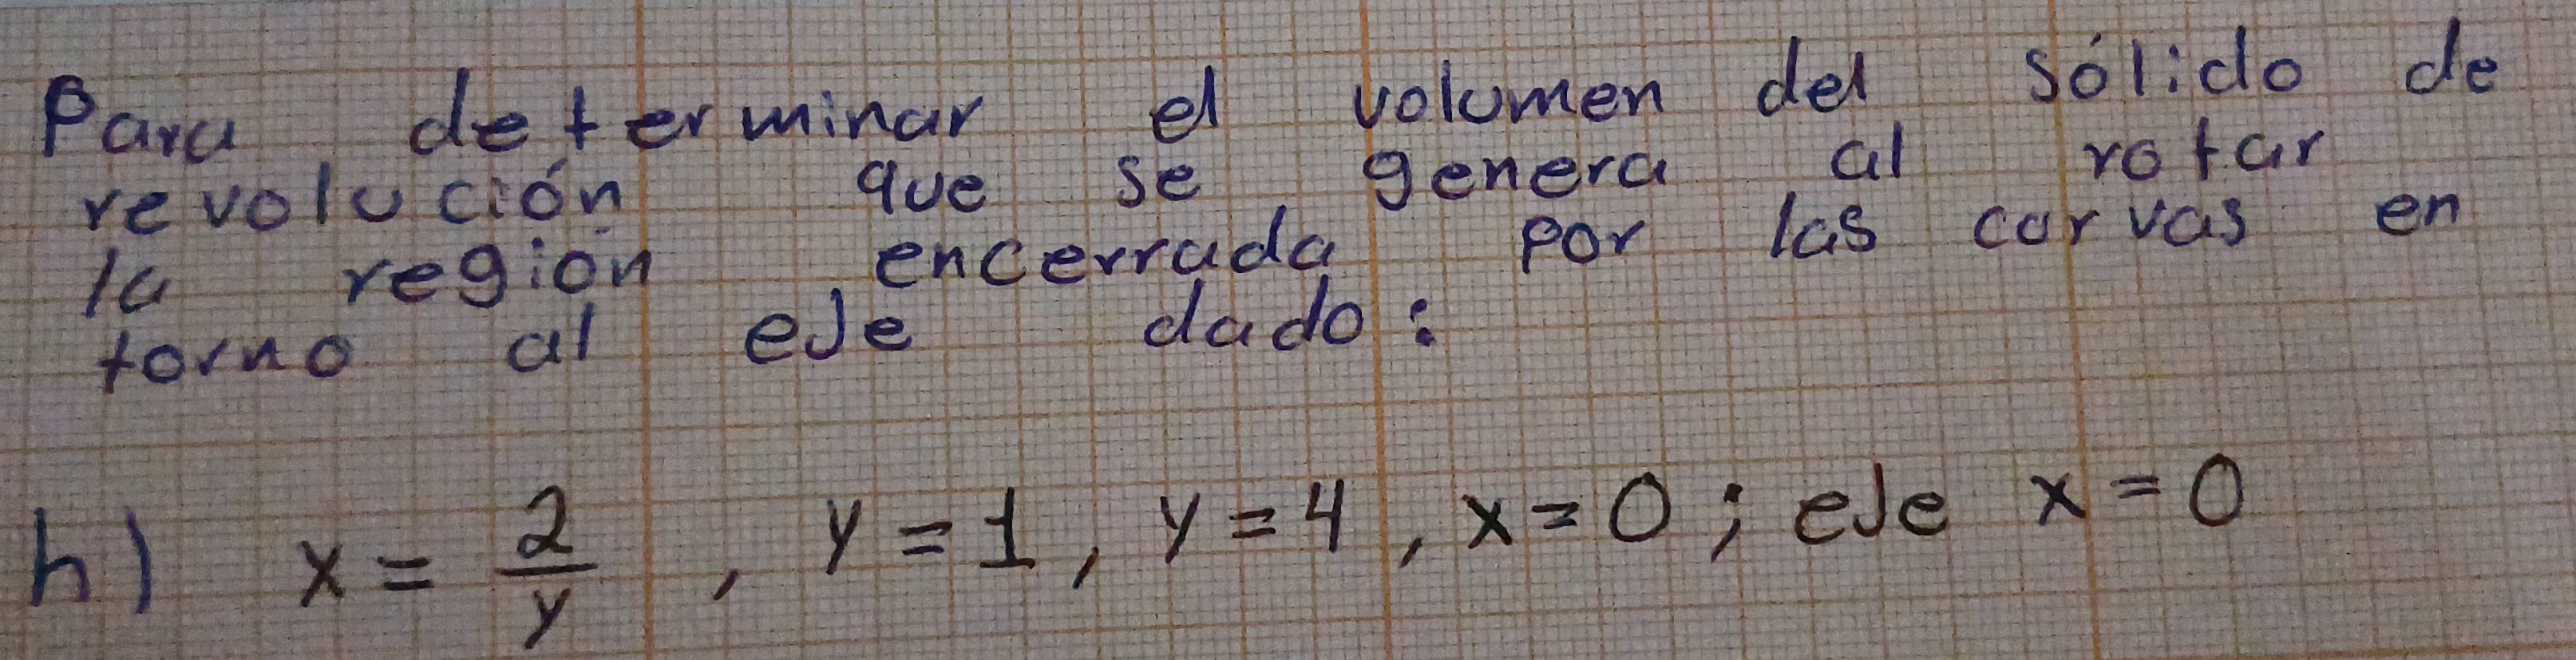 Para determinar el volumen del sólido de
revolución que se genera al rotar
la región encerrada por las curvas en
torno al eje dado:
h) x = 2/y , y = 1 , y = 4 , x = 0 ; eje x = 0